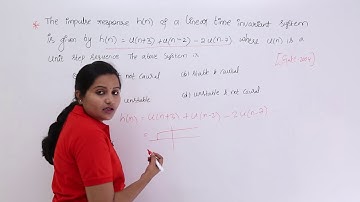 * The impulse response h(n) of a linear time invariant system
is given by h(n) = u(n+3) + u(n-2) - 2u(n-7). where u(n) is a
unit step sequence The above system is
not causal (b) stable & causal
[Gate 2004]
unstable (d) unstable & not causal
h(n) = u(n+3) + u(n-2) - 2u(n-7)